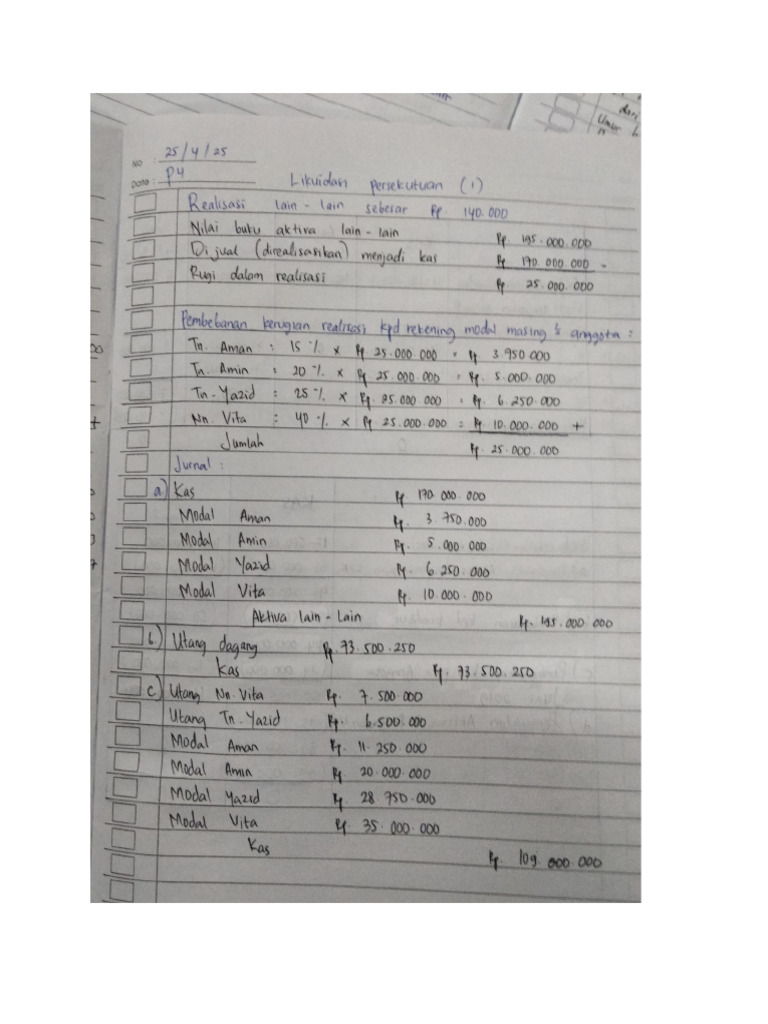 NO : 25/4/25
DATE : P4
Likuidasi persekutuan (1)
Realisasi lain-lain sebesar Rp 140.000
Nilai buku aktiva lain-lain Rp 195.000.000
Dijual (direalisasikan) menjadi kas Rp 170.000.000 -
Rugi dalam realisasi Rp 25.000.000
Pembebanan kerugian realisasi kpd rekening modal masing² anggota :
Tn. Aman : 15 % x Rp 25.000.000 = Rp 3.750.000
Tn. Amin : 20 % x Rp 25.000.000 = Rp. 5.000.000
Tn. Yazid : 25 % x Rp. 25.000.000 = Rp. 6.250.000
Nn. Vita : 40 % x Rp 25.000.000 = Rp 10.000.000 +
Jumlah Rp 25.000.000
Jurnal :
a) Kas Rp 170.000.000
Modal Aman Rp. 3.750.000
Modal Amin Rp. 5.000.000
Modal Yazid Rp 6.250.000
Modal Vita Rp. 10.000.000
Aktiva lain-lain Rp. 195.000.000
b) Utang dagang Rp. 73.500.250
Kas Rp. 73.500.250
c) Utang Nn. Vita Rp. 7.500.000
Utang Tn. Yazid Rp. 6.500.000
Modal Aman Rp. 11.250.000
Modal Amin Rp 20.000.000
Modal Yazid Rp 28.750.000
Modal Vita Rp 35.000.000
Kas Rp. 109.000.000